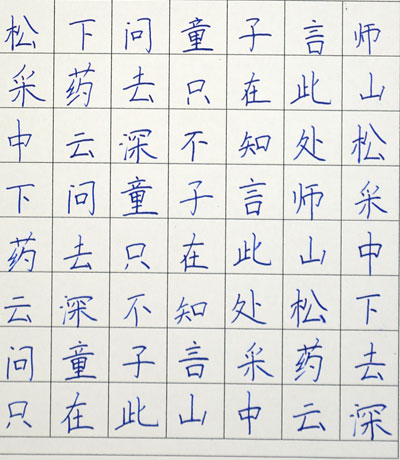 松下问童子言师
采药去只在此山
中云深不知处松
下问童子言师采
药去只在此山中
云深不知处松下
问童子言采药去
只在此山中云深